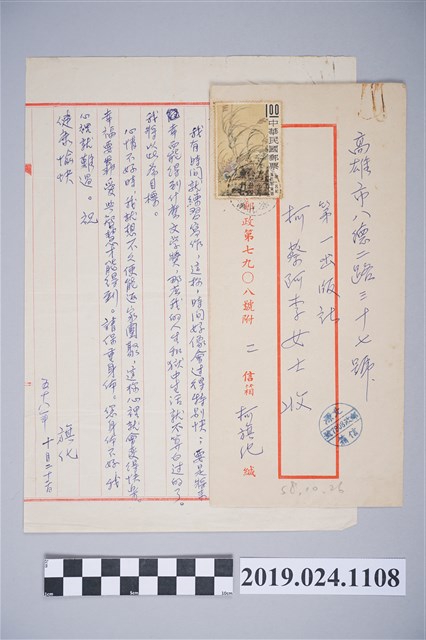 高雄市八德二路三十七號
第一出版社
柯蔡阿李女士收
郵政第七九〇八號附 二 信箱 柯旗化 緘
1.00
中華民國郵票
58.10.25
我有時間就練習寫作，這樣，時間好像會過得特別快；要是將來
幸而能得到什麼文學獎，那末我的人生和獄中生活就不算白過的了。
我將以此為目標。
心情不好時我就想不久便能返家團聚，這樣心裡就會變得快樂。
幸福要忍受些苦楚才能得到。請保重身体。您身体不好我
心裡就難過。祝
健康愉快
旗化
五十八年 十月二十二日
2019.024.1108